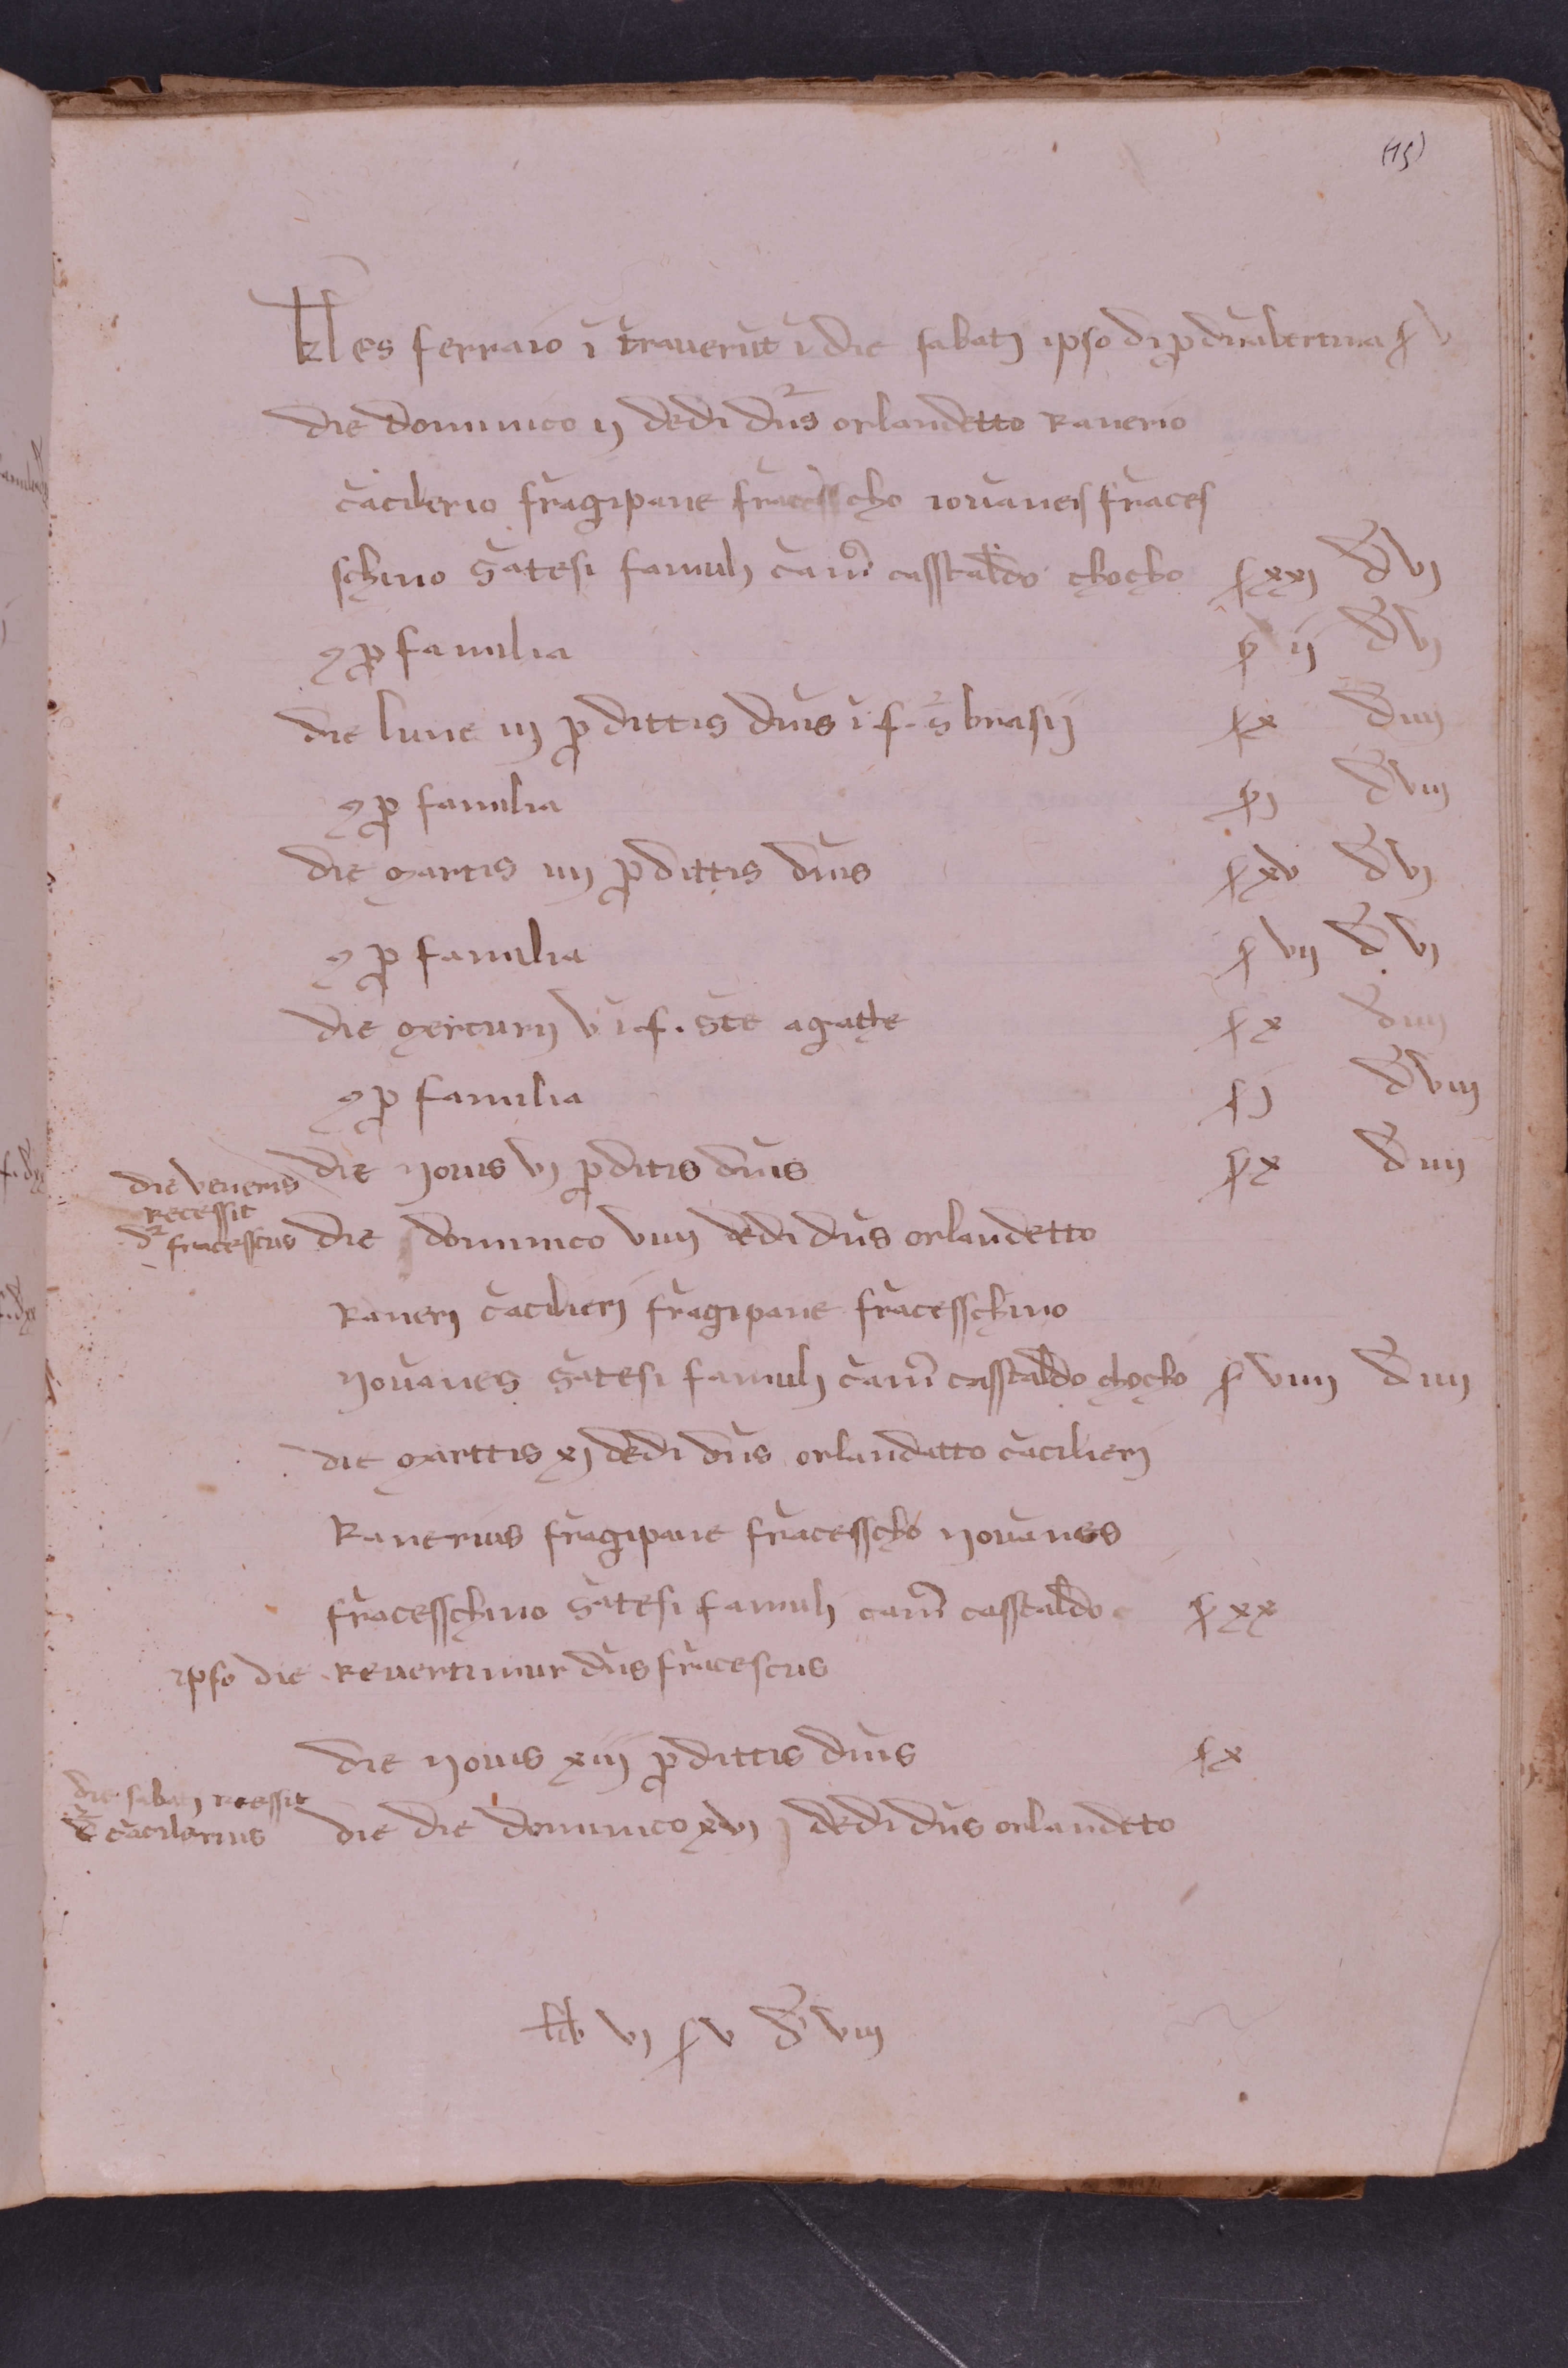 (15)
kl es ferraio ī traverūt ī die sabatj ipso dj p dnābertina s v
die dominico ij dedi dn̄s orlandetto Ranerio
cācilerio frāgipane frācesscho iovaneis frāces
schino sātesi famulj cām̄ casstaldo chocho s xxj d̄ vj
⁊ p familia s ij d̄ vj
die lune iij p dittis dnīs ī f. s̄ brasij s x d iiij
⁊ p familia s j d̄ viij
die martis iiij p dittis dnīs s xv d̄ vj
⁊ p familia s vij d̄ vj
die mercurij v ī f. sc̄te agathe s x d iiij
⁊ p familia s j d̄ viij
die veneris
recessit
d frācesscus
die Jovis vj p ditis dn̄is s x d̄ iiij
die dominico viiij dedi dn̄s orlandetto
Ranerj cācilierj frāgipane frācesschino
Jovanes sātesi famulj cām̄ casstaldo chocho s viiij d̄ iiij
die marttis xj dedi dn̄s orlandatto cācilierj
Ranerius frāgipane frācesscho Jovanes
frācesschino sātesi famulj cam̄ casstaldo s xx
ipso die Revertimur dn̄s frācescus
die Jovis xiij p dittis dnīs s x
die sabatj recessit
d̄ cācilerius
die die dominico xvj dedi dn̄s orlandeto
lib vj s v d̄ viij